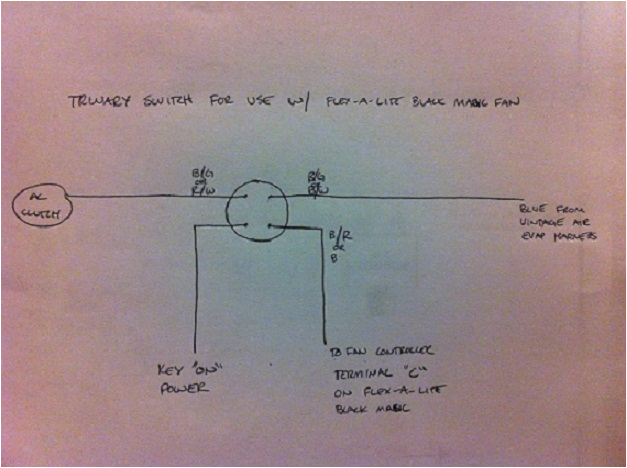 TRINARY SWITCH FOR USE W/ FLEX-A-LITE BLACK MAGIC FAN
AC
CLUTCH
B/G
OR
R/W
B/G
OR
B/W
BLUE FROM
VINTAGE AIR
EVAP HARNESS
B/R
OR
B
KEY "ON"
POWER
TO FAN CONTROLLER
TERMINAL "C"
ON FLEX-A-LITE
BLACK MAGIC